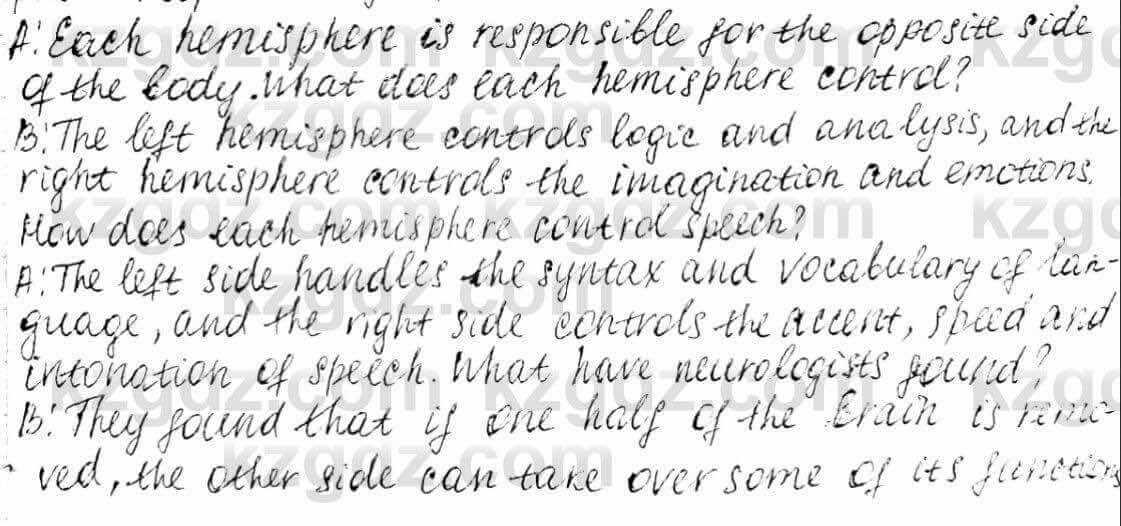 A: Each hemisphere is responsible for the opposite side
of the body. What does each hemisphere control?
B: The left hemisphere controls logic and analysis, and the
right hemisphere controls the imagination and emotions.
How does each hemisphere control speech?
A: The left side handles the syntax and vocabulary of lan-
guage, and the right side controls the accent, speed and
intonation of speech. What have neurologists found?
B: They found that if one half of the brain is remo-
ved, the other side can take over some of its functions